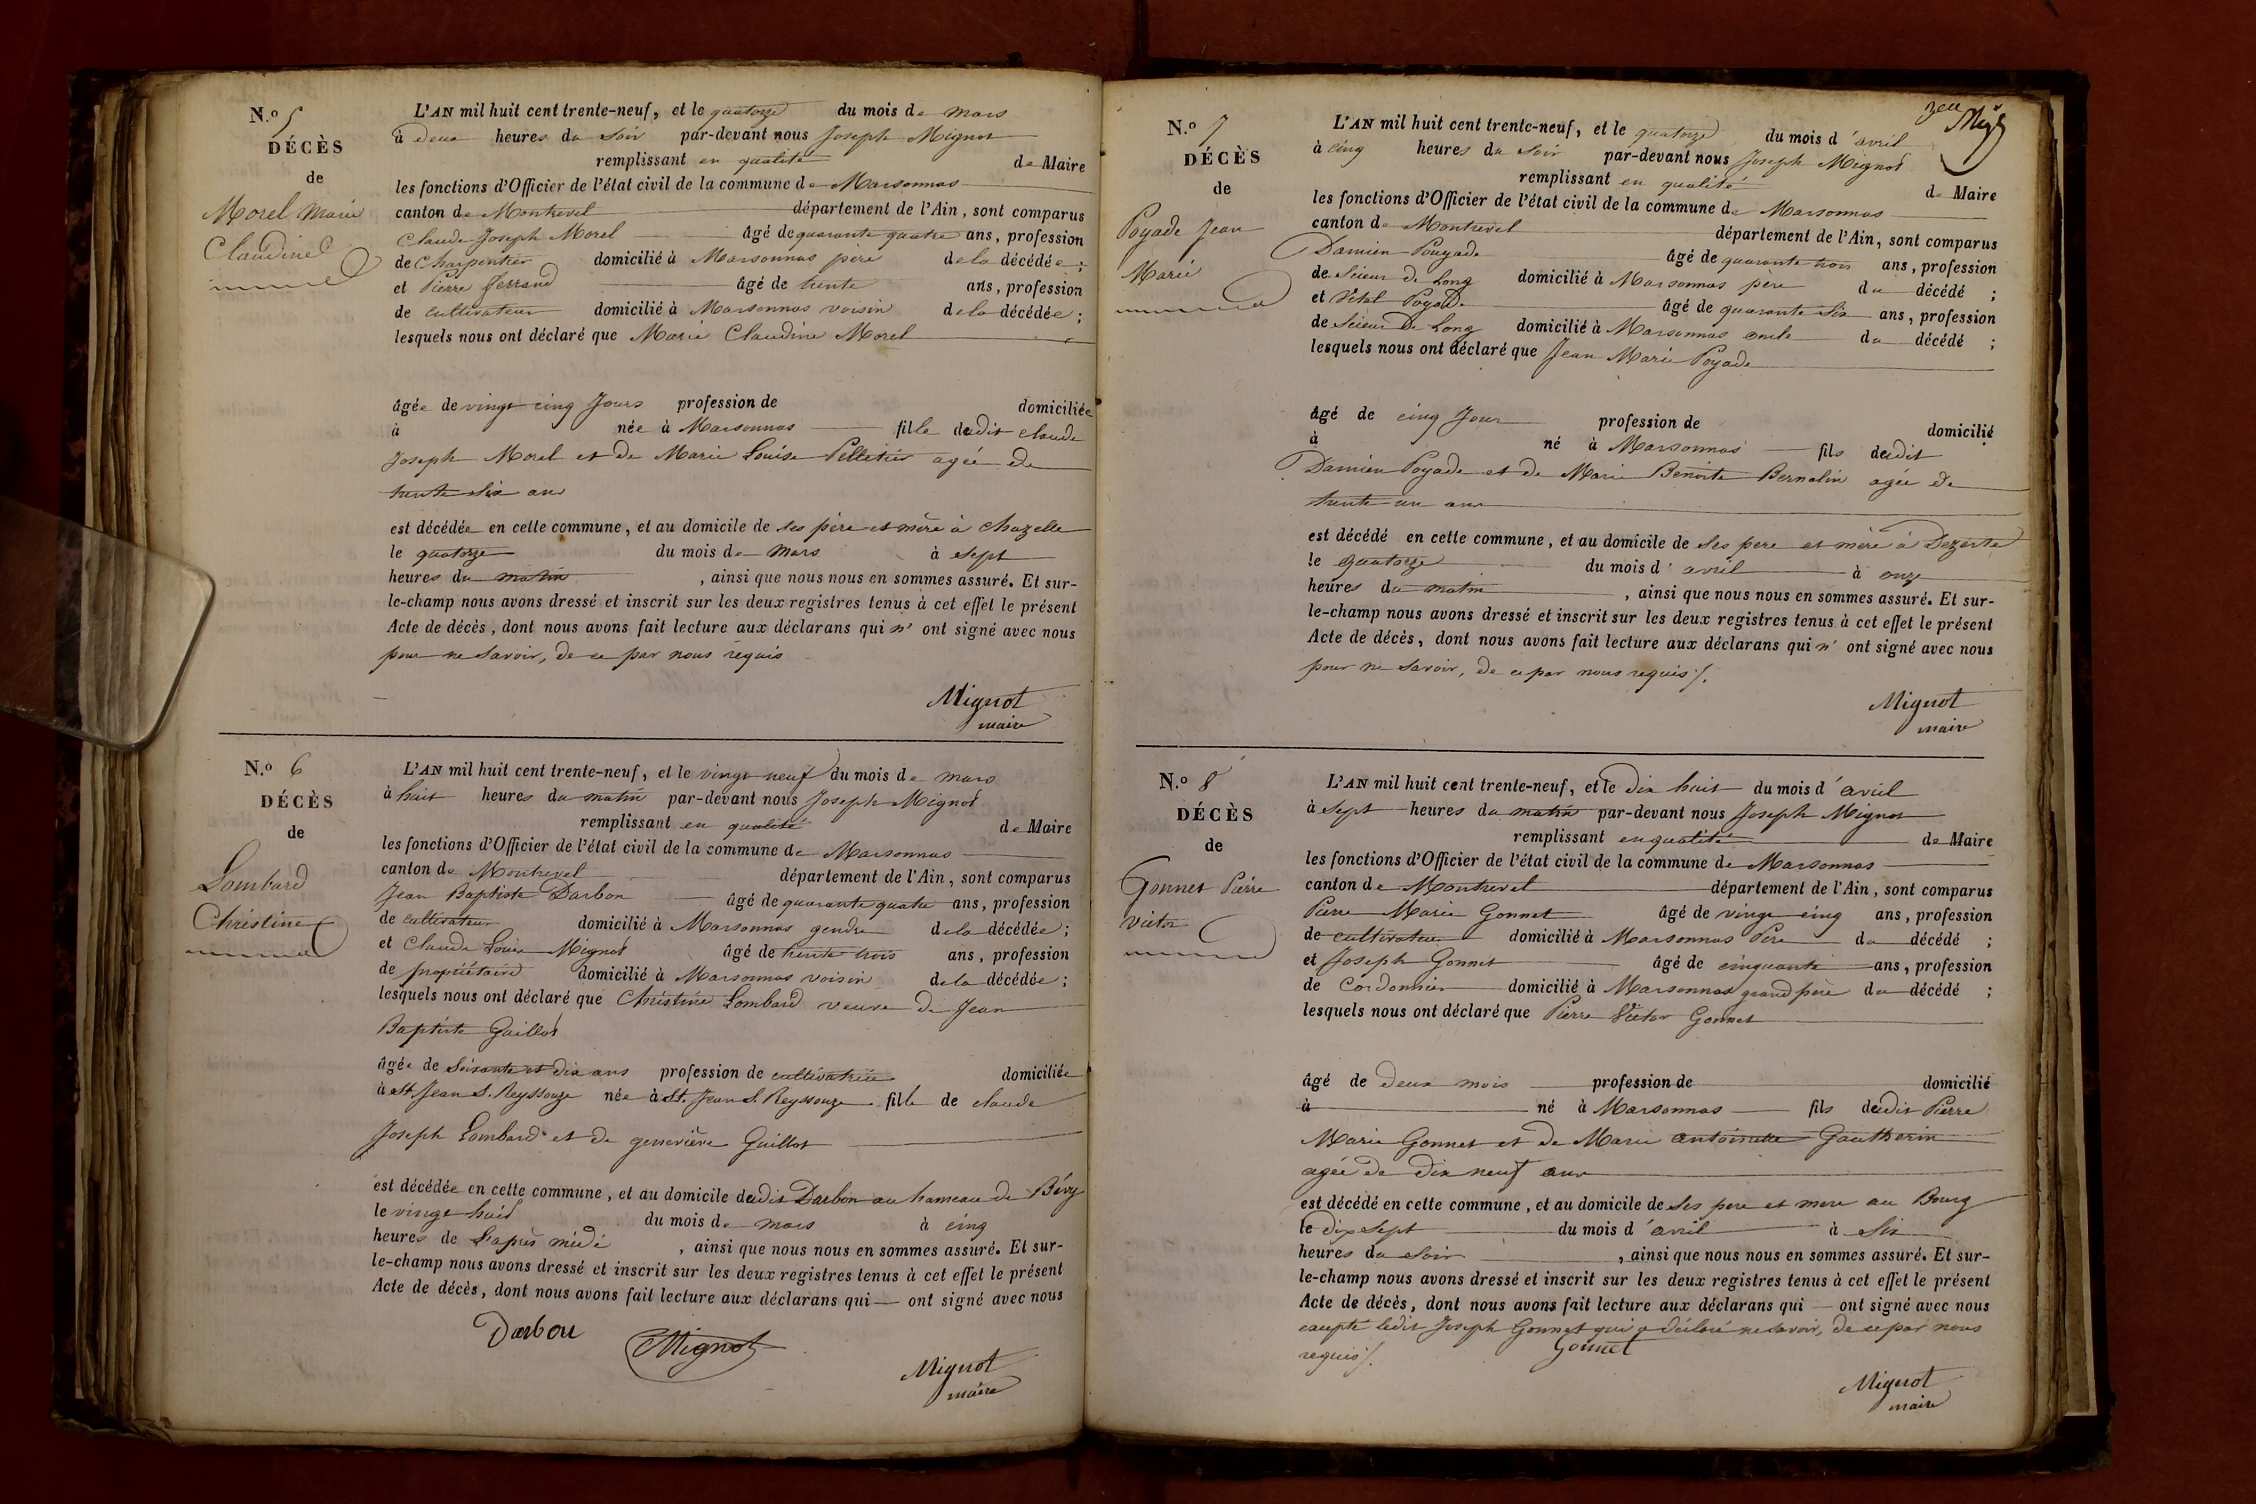 N.º 5
DÉCÈS
de
Morel Marie
Claudine
L'AN mil huit cent trente-neuf, et le quatorze du mois de mars
à deux heures du soir par-devant nous Joseph Mignot
remplissant en qualité de Maire
les fonctions d'Officier de l'état civil de la commune de Marsonnas
canton de Montrevel département de l'Ain, sont comparus
Claude Joseph Morel âgé de quarante quatre ans, profession
de Charpentier domicilié à Marsonnas père de la décédée ;
et Pierre Ferrand âgé de trente ans, profession
de cultivateur domicilié à Marsonnas voisin de la décédée ;
lesquels nous ont déclaré que Marie Claudine Morel
âgée de vingt cinq Jours profession de domiciliée
à née à Marsonnas fille dudit Claude
Joseph Morel et de Marie Louise Pelletier agée de
trente six ans
est décédée en cette commune, et au domicile de ses père et mère à Chazelle
le quatorze du mois de mars à sept
heures du matin , ainsi que nous nous en sommes assuré. Et sur-
le-champ nous avons dressé et inscrit sur les deux registres tenus à cet effet le présent
Acte de décès, dont nous avons fait lecture aux déclarans qui n' ont signé avec nous
pour ne savoir, de ce par nous requis
Mignot
maire
N.º 6
DÉCÈS
de
Lombard
Christine
L'AN mil huit cent trente-neuf, et le vingt neuf du mois de mars
à huit heures du matin par-devant nous Joseph Mignot
remplissant en qualité de Maire
les fonctions d'Officier de l'état civil de la commune de Marsonnas
canton de Montrevel département de l'Ain, sont comparus
Jean Baptiste Darbon âgé de quarante quatre ans, profession
de cultivateur domicilié à Marsonnas gendre de la décédée ;
et Claude Louis Mignot âgé de trente trois ans, profession
de propriétaire domicilié à Marsonnas voisin de la décédée ;
lesquels nous ont déclaré que Christine Lombard veuve de Jean
Baptiste Guillot
âgée de soixante et dix ans profession de cultivatrice domiciliée
à St Jean S. Reyssouze née à St. Jean S. Reyssouze fille de Claude
Joseph Lombard et de geneviève Guillot
est décédée en cette commune, et au domicile dudit Darbon au hameau de Bévy
le vingt huit du mois de mars à cinq
heures de l'après midi , ainsi que nous nous en sommes assuré. Et sur-
le-champ nous avons dressé et inscrit sur les deux registres tenus à cet effet le présent
Acte de décès, dont nous avons fait lecture aux déclarans qui ont signé avec nous
Darbon Mignot
Mignot
maire
N.º 7
DÉCÈS
de
Poyade Jean
Marie
L'AN mil huit cent trente-neuf, et le quatorze du mois d'avril
à cinq heures du soir par-devant nous Joseph Mignot
remplissant en qualité de Maire
les fonctions d'Officier de l'état civil de la commune de Marsonnas
canton de Montrevel département de l'Ain, sont comparus
Damien Pouyade âgé de quarante trois ans, profession
de Scieur de Long domicilié à Marsonnas père du décédé ;
et Vital Poyade âgé de quarante six ans, profession
de Scieur de Long domicilié à Marsonnas oncle du décédé ;
lesquels nous ont déclaré que Jean Marie Poyade
âgé de cinq Jour profession de domicilié
à né à Marsonnas fils dudit
Damien Poyade et de Marie Benoite Bernolin agée de
trente un ans
est décédé en cette commune, et au domicile de ses père et mère à Dezerte
le quatorze du mois d'avril à onze
heures du matin , ainsi que nous nous en sommes assuré. Et sur-
le-champ nous avons dressé et inscrit sur les deux registres tenus à cet effet le présent
Acte de décès, dont nous avons fait lecture aux déclarans qui n' ont signé avec nous
pour ne savoir, de ce par nous requis /.
Mignot
maire
N.º 8
DÉCÈS
de
Gonnet Pierre
Victor
L'AN mil huit cent trente-neuf, et le dix huit du mois d'avril
à sept heures du matin par-devant nous Joseph Mignot
remplissant en qualité de Maire
les fonctions d'Officier de l'état civil de la commune de Marsonnas
canton de Montrevel département de l'Ain, sont comparus
Pierre Marie Gonnet âgé de vingt cinq ans, profession
de cultivateur domicilié à Marsonnas Père du décédé ;
et Joseph Gonnet âgé de cinquante ans, profession
de Cordonnier domicilié à Marsonnas grand père du décédé ;
lesquels nous ont déclaré que Pierre Victor Gonnet
âgé de deux mois profession de domicilié
à né à Marsonnas fils dudit Pierre
Marie Gonnet et de Marie antoinette Gautherin
agée de dix neuf ans
est décédé en cette commune, et au domicile de ses pere et mere au Bourg
le dix sept du mois d'avril à six
heures du soir , ainsi que nous nous en sommes assuré. Et sur-
le-champ nous avons dressé et inscrit sur les deux registres tenus à cet effet le présent
Acte de décès, dont nous avons fait lecture aux déclarans qui ont signé avec nous
excepté ledit Joseph Gonnet qui a déclaré ne savoir, de ce par nous
requis /. Gonnet
Mignot
maire